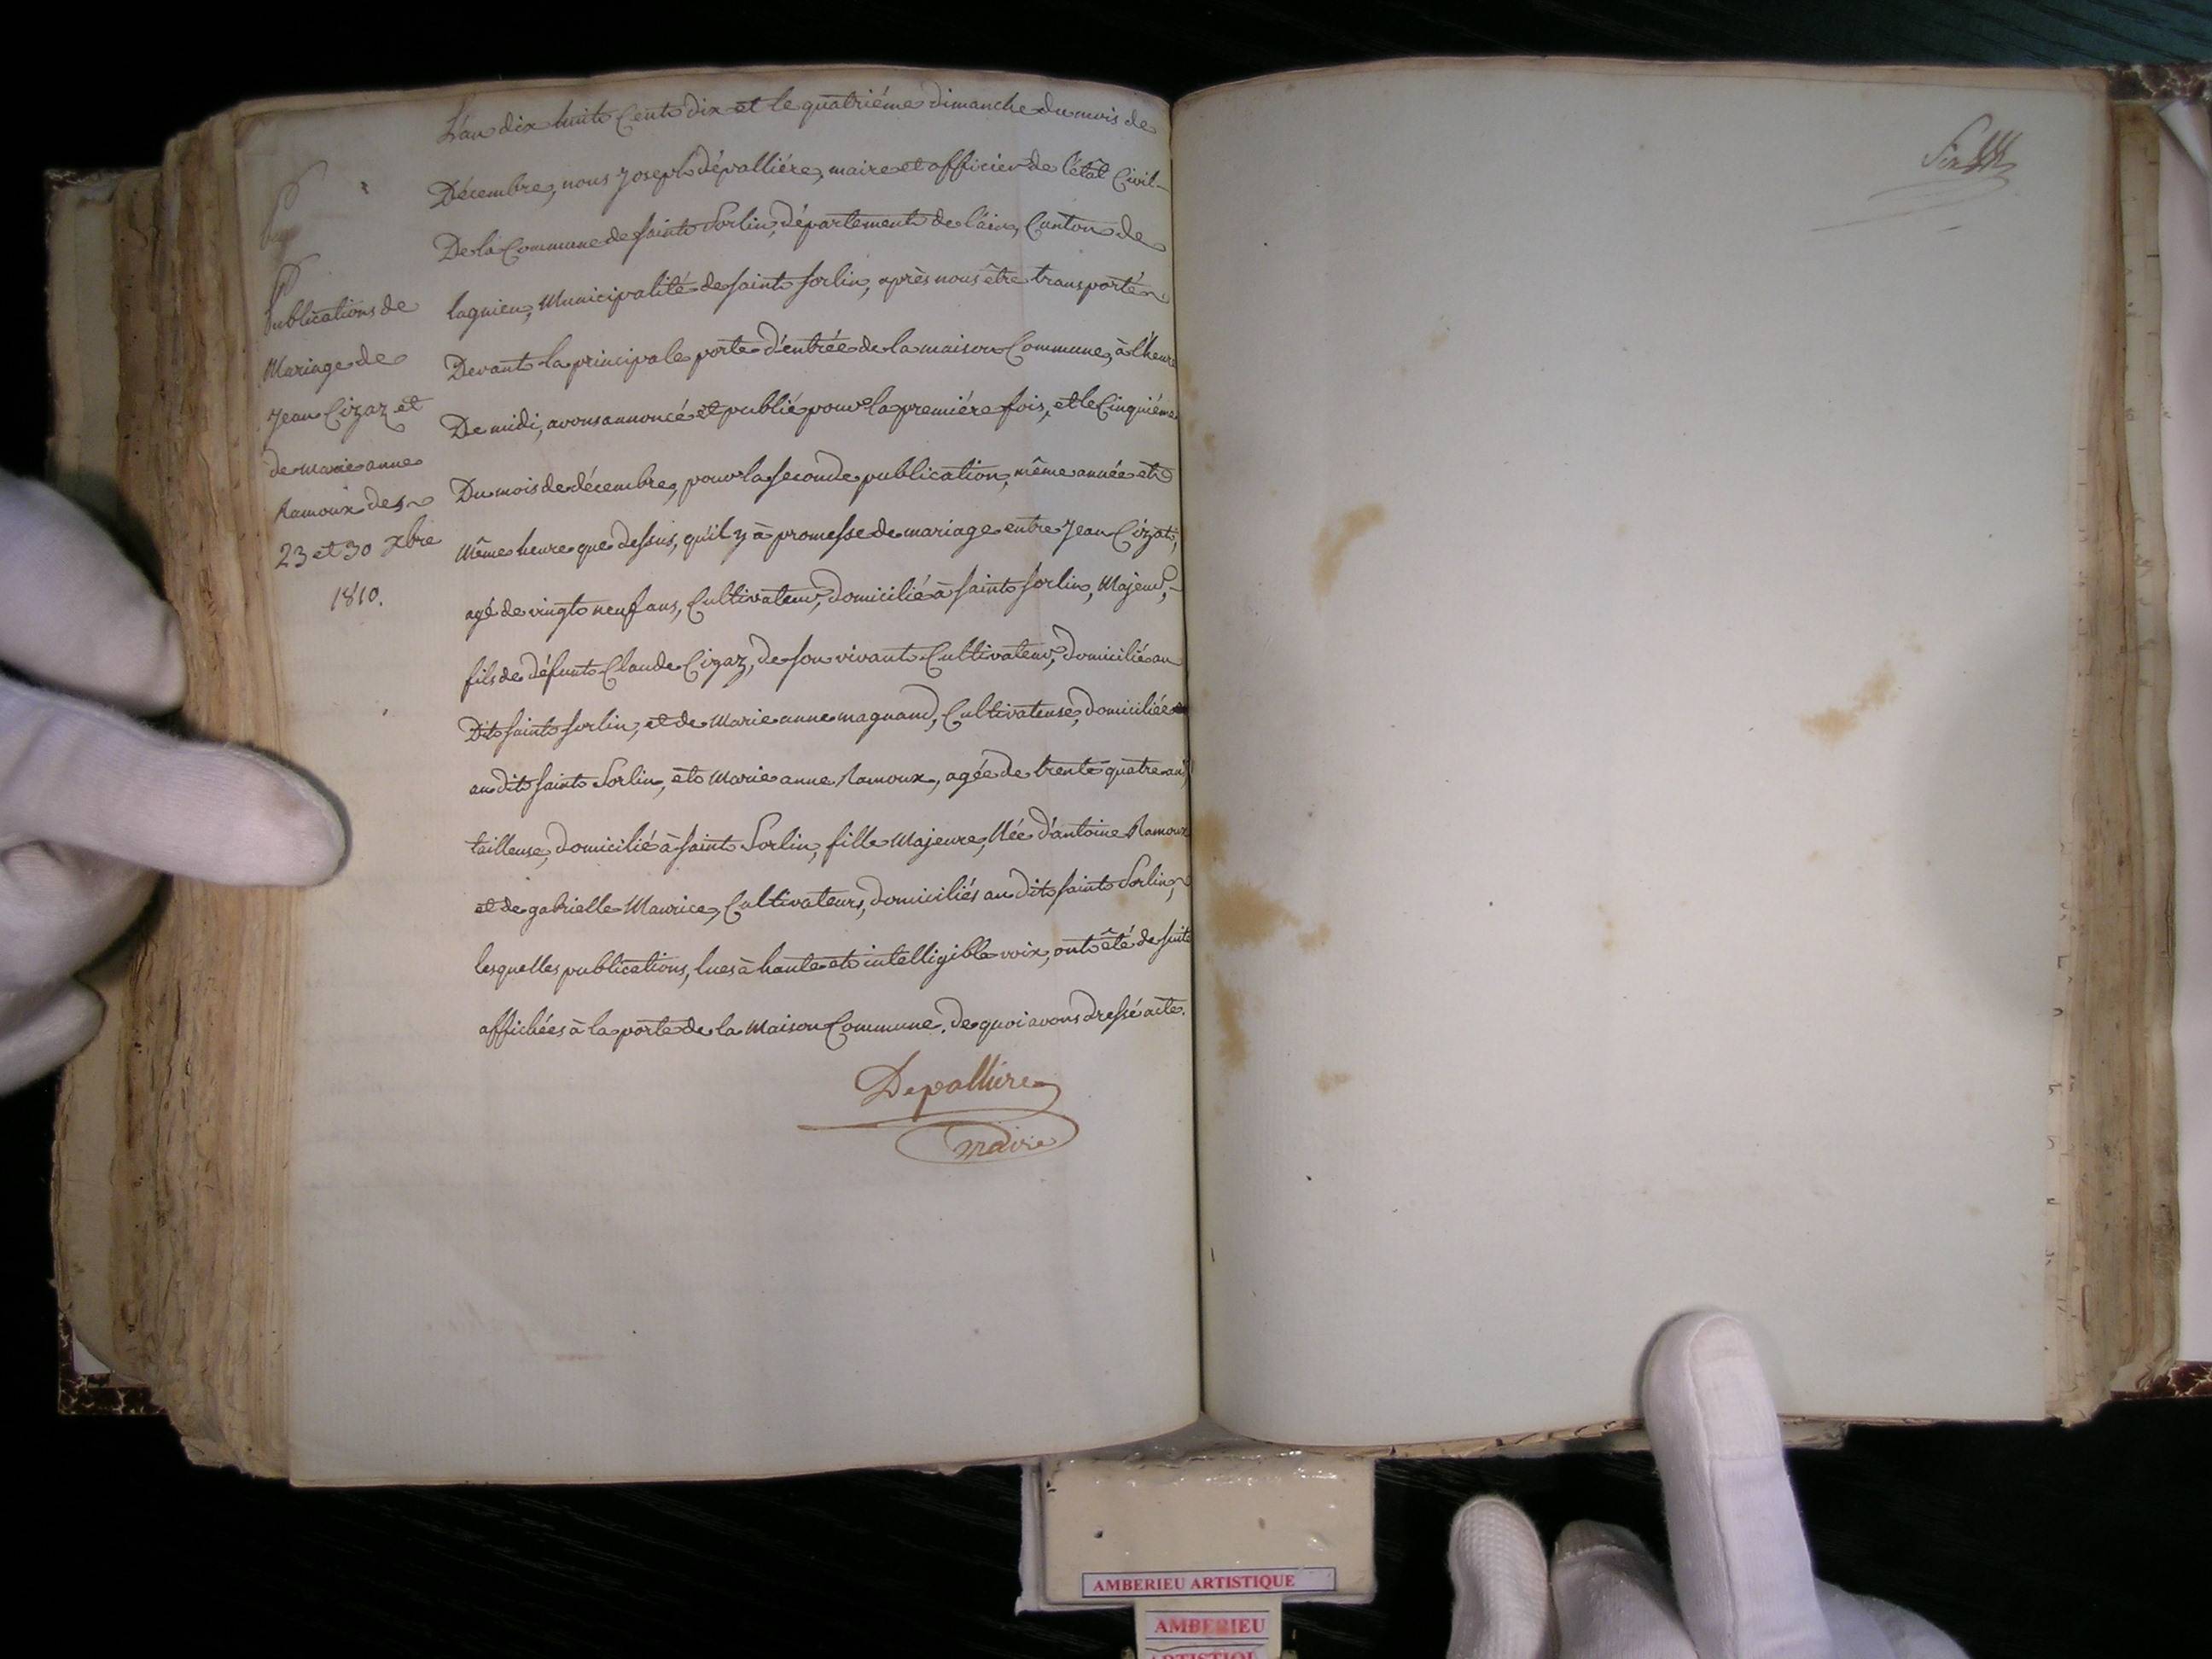 Publications de
Mariage de
Jean Cizaz et
de marie anne
Ramoux des
23 et 30 xbre
1810.
L'an dix huit Cent dix et le quatriéme dimanche du mois de
Décembre, nous Joseph dépalliére, maire et officier de l'état Civil
De la Commune de saint Sorlin, département de l'ain, Canton de
lagnieu, Municipalité de saint sorlin, après nous être transporté
Devant la principale porte d'entrée de la maison Commune, à l'heure
De midi, avons annoncé et publié pour la premiére fois, et le Cinquiéme
Du mois de décembre, pour la seconde publication, même année et
Même heure que dessus, qu'il y à promesse de mariage entre Jean Cizat,
agé de vingt neuf ans, Cultivateur, domicilié à saint sorlin, Majeur,
fils de défunt Claude Cizaz, de son vivant Cultivateur, domicilié au
Dit saint sorlin, et de Marie anne magnand, Cultivateuse, domiciliée
au dit saint Sorlin, et Marie anne Ramoux, agée de trente quatre ans
tailleuse, domicilié à saint Sorlin, fille Majeure, Née d'antoine Ramoux
et de gabrielle Maurice, Cultivateurs, domiciliés au dit saint Sorlin,
lesquelles publications, lues à haute et intelligible voix, ont êté de suite
affichées à la porte de la Maison Commune. de quoi avons dressé acte.
Depalliere
maire
AMBERIEU ARTISTIQUE
AMBERIEU
ARTISTIQUE